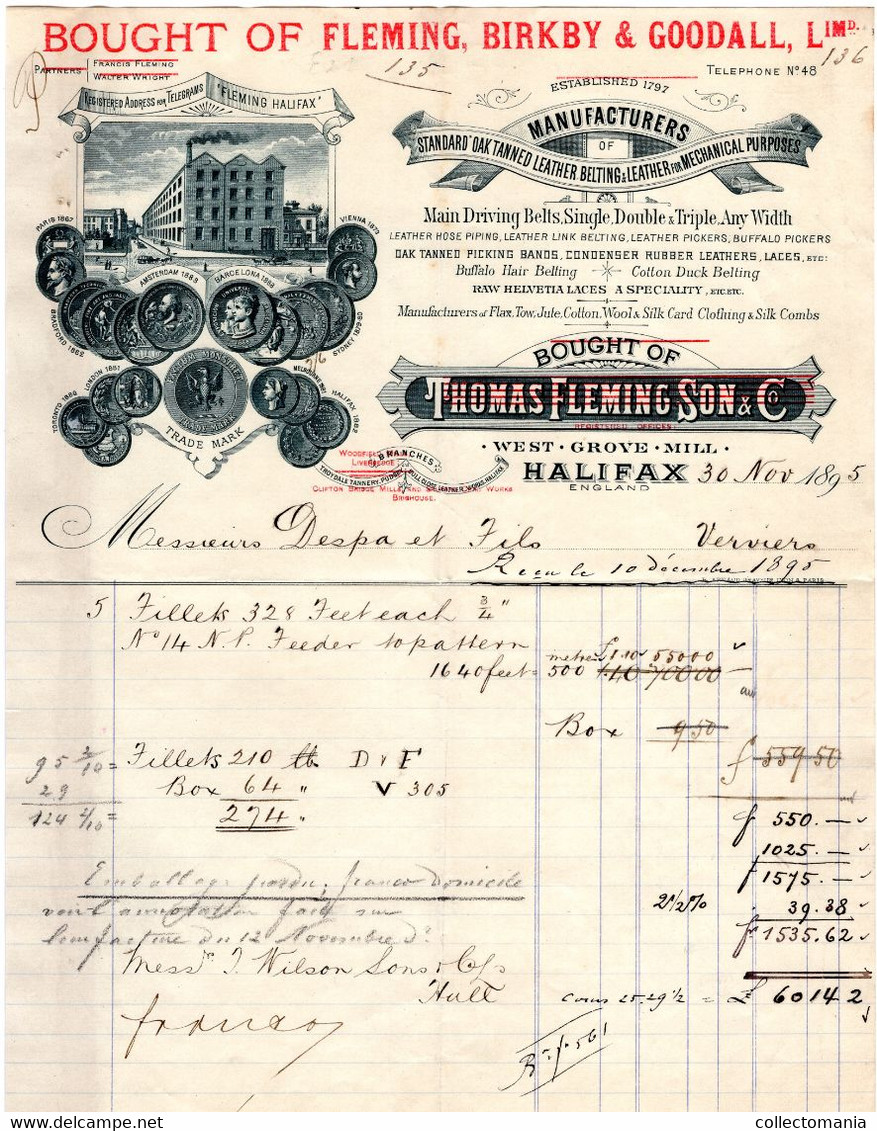 BOUGHT OF FLEMING, BIRKBY & GOODALL, LIMD.
PARTNERS FRANCIS FLEMING
WALTER WRIGHT
135
136
TELEPHONE No 48
REGISTERED ADDRESS FOR TELEGRAMS "FLEMING HALIFAX"
ESTABLISHED 1797
MANUFACTURERS
OF
"STANDARD" OAK TANNED LEATHER BELTING & LEATHER FOR MECHANICAL PURPOSES
Main Driving Belts, Single, Double & Triple, Any Width
LEATHER HOSE PIPING, LEATHER LINK BELTING, LEATHER PICKERS, BUFFALO PICKERS
OAK TANNED PICKING BANDS, CONDENSER RUBBER LEATHERS, LACES, ETC:
Buffalo Hair Belting Cotton Duck Belting
RAW HELVETIA LACES A SPECIALITY, ETC. ETC.
Manufacturers of Flax, Tow, Jute, Cotton, Wool & Silk Card Clothing & Silk Combs
PARIS 1867
VIENNA 1873
AMSTERDAM 1883
BARCELONA 1888
BRADFORD 1882
SYDNEY 1879-80
LONDON 1881
TORONTO 1882
HALIFAX 1882
TRADE MARK
BOUGHT OF
THOMAS FLEMING SON & Co
REGISTERED OFFICES
WEST · GROVE · MILL
HALIFAX 30 Nov 1895
ENGLAND
BRANCHES
CLIFTON BRIDGE MILLS
BRIGHOUSE.
Messieurs Despa et Fils Verviers
Recu le 10 décembre 1895
5 Fillets 328 Feet each 3/4"
No 14 N.P. Feeder to pattern
metres 1.10 550 00
1640 feet = 500 1.40 700 00
Box 9 50
95 2/10 = Fillets 210 lb D & F
f 559 50
29 Box 64 " V 305
124 2/10 = 274 "
f 550. —
1025. —
f 1575. —
Emballage perdu, franco domicile
2 1/2 % 39.38
fr 1535.62
facture du 12 Novembre
Messrs T. Wilson Sons & Co
Hull
cours 25.29 1/2 = £ 60 14 2
franco
collectomania